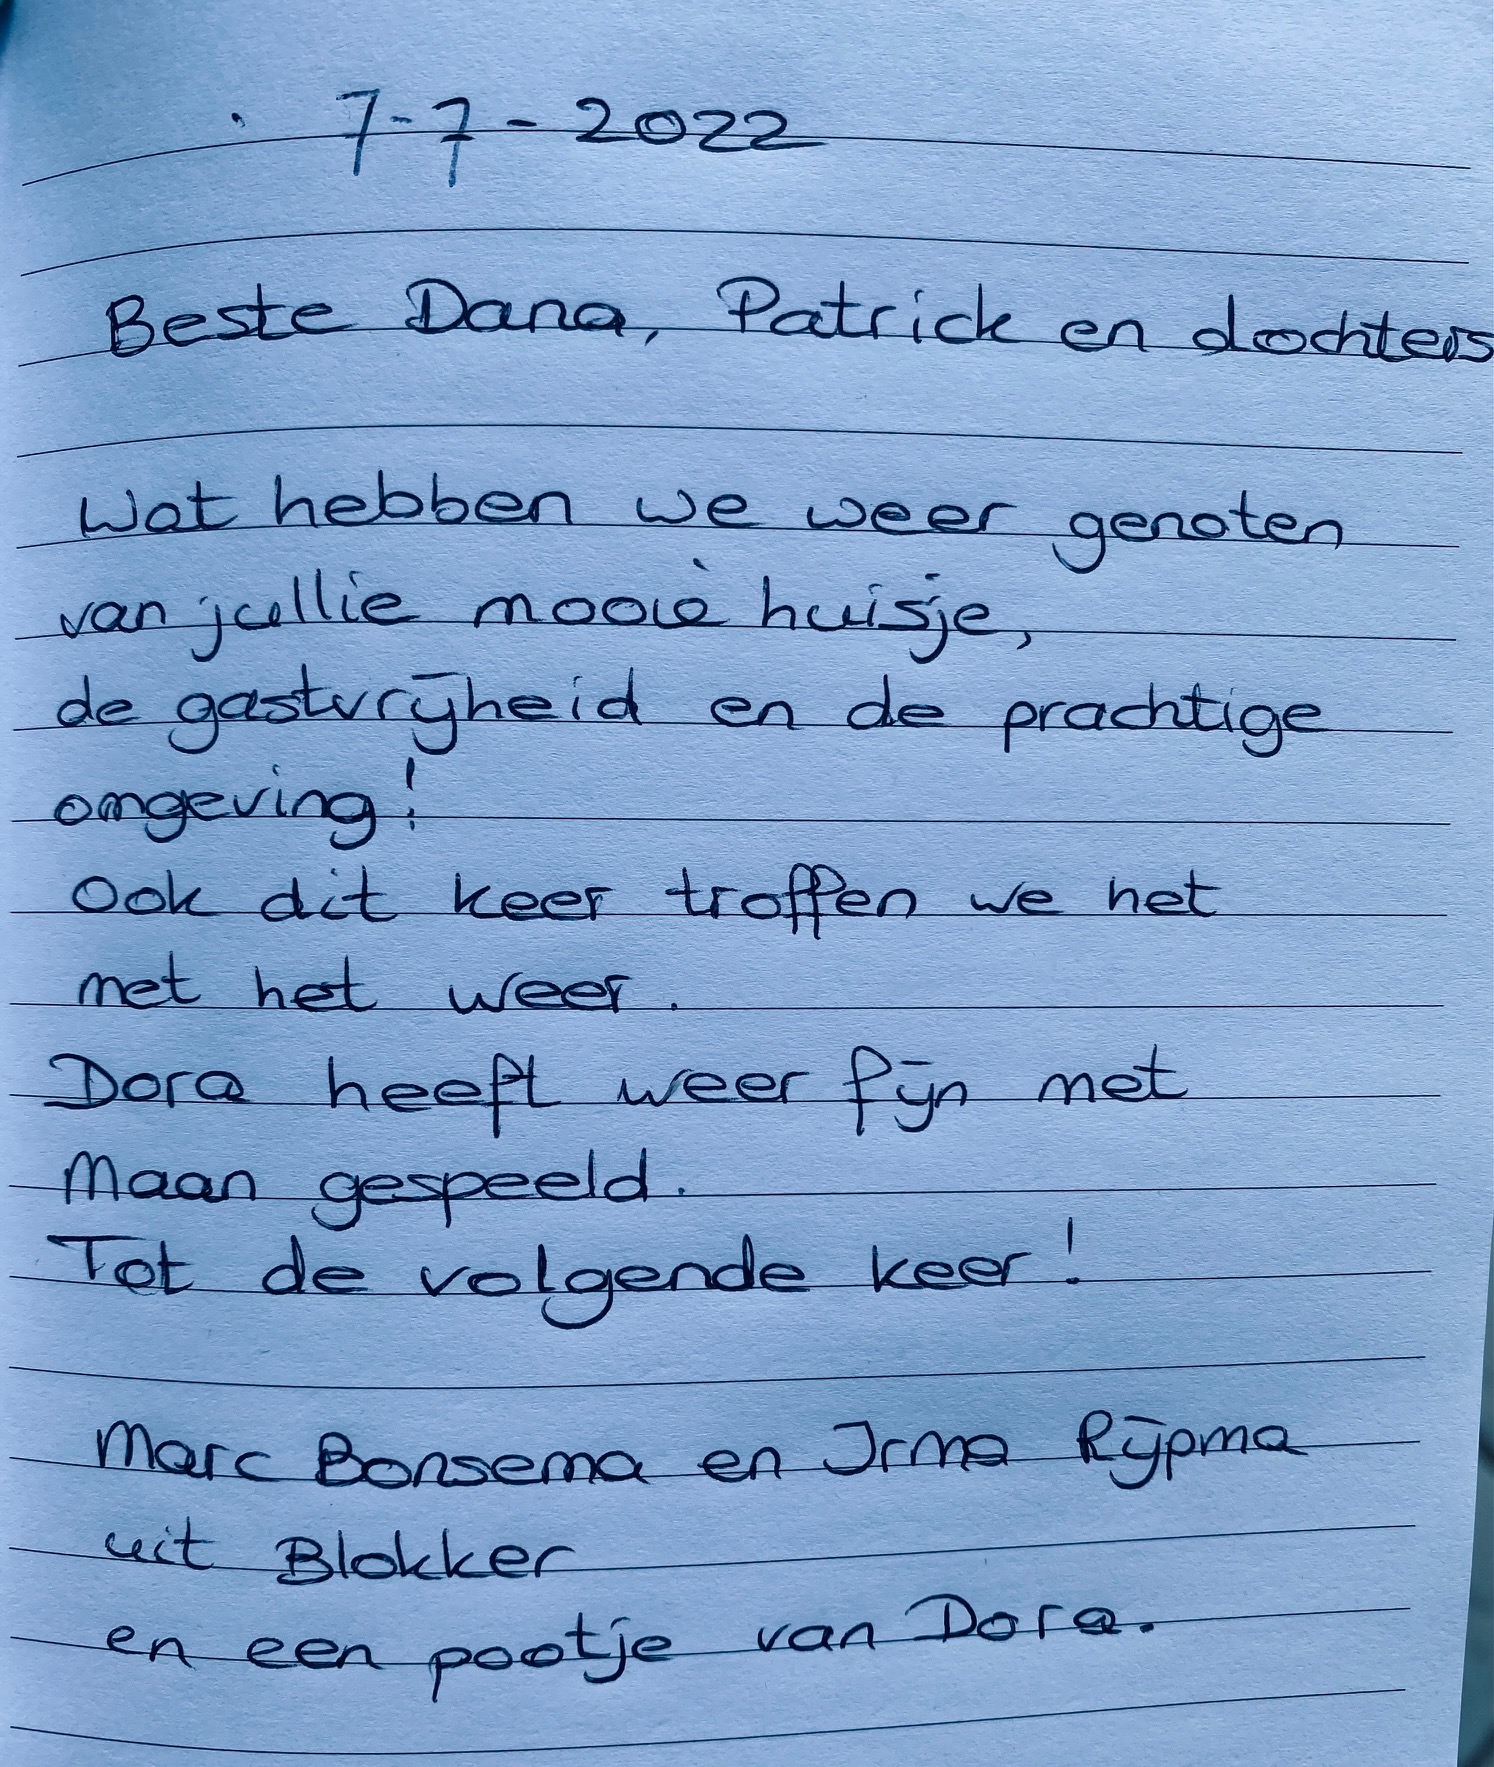 7-7-2022
Beste Dana, Patrick en dochters
Wat hebben we weer genoten
van jullie mooie huisje,
de gastvrijheid en de prachtige
omgeving!
Ook dit keer troffen we het
met het weer.
Dora heeft weer fijn met
Maan gespeeld.
Tot de volgende keer!
Marc Bonsema en Irma Rijpma
uit Blokker
en een pootje van Dora.